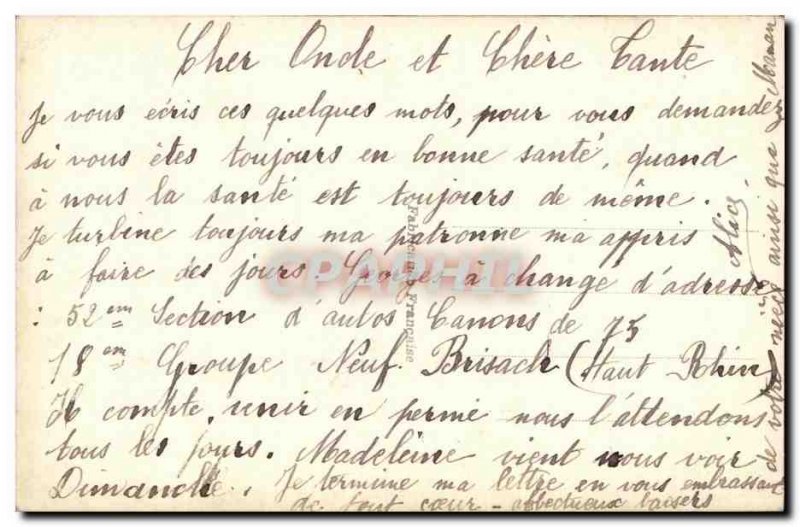 Cher Oncle et Chère Tante
Je vous écris ces quelques mots, pour vous demandez
si vous êtes toujours en bonne santé, quand
à nous la santé est toujours de même.
Je turbine toujours ma patronne m'a appris
à faire des jours. Georges à change d'adresse
: 52em Section d'autos Canons de 75
18em Groupe Neuf. Brisach (Haut Rhin)
Il compte venir en perme nous l'attendons
tous les jours. Madeleine vient nous voir
Dimanche. Je termine ma lettre en vous embrassant
de tout cœur - affectueux baisers
de votre nièce ainsi que Maman
Alice
Fabrication Française
CPAPHIL